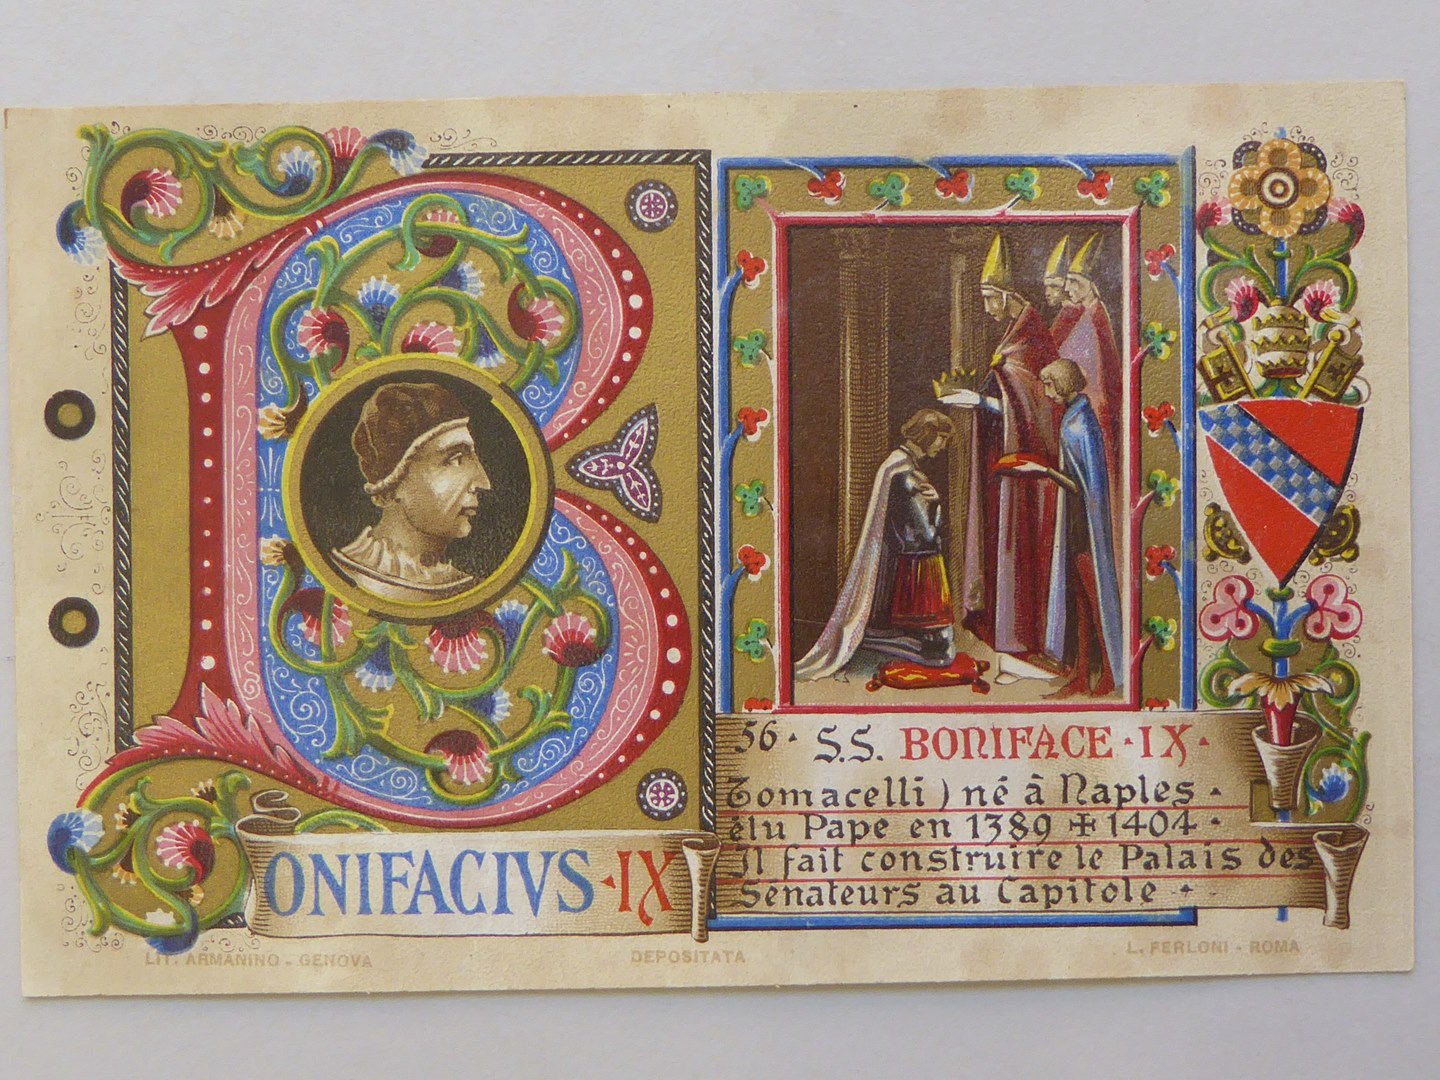 BONIFACIVS · IX
56 · S.S. BONIFACE · IX ·
Tomacelli ) né à Naples ·
élu Pape en 1389 ✠ 1404 ·
Il fait construire le Palais des
Sénateurs au Capitole ·
LIT. ARMANINO - GENOVA
DEPOSITATA
L. FERLONI - ROMA